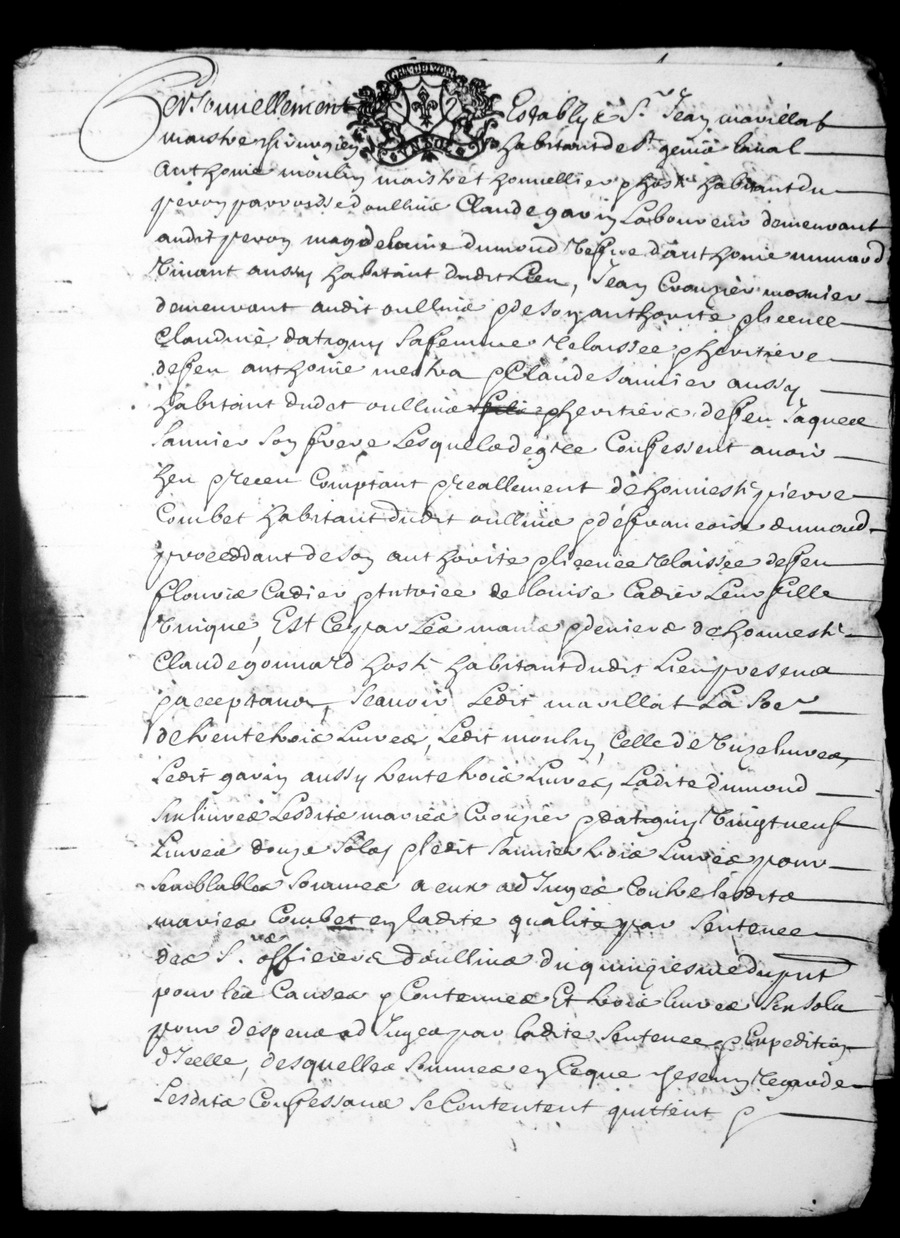 GEN. DE LYON
UN SOL
Personnellement Establys Sr. Jean mavillat
maistre chirurgien habitant de St. genis laval
Anthoine moulin maistre et honnellier & hoste habitant du
peron parroisse d'oullins Claude gavin Laboureur demeurant
audit peron magdelaine dumond vefve d'anthoine
vivant aussy habitant dudit Lieu, Jean Crouzier mosnier
demeurant audit oullins & de son authorité & licence
Claudine datiguy sa femme relaissée & heritiere
de feu anthoine & Claude sannier aussy
habitant dudit oullins & heritiers de feu Jaques
sannier son frere Lesquels de gré Confessent avoir
heu & receu Comptant & reallement de honneste pierre
Combet habitant dudit oullins & de francoise dumond
proceddant de son authorité & licence relaissée de feu
flouris Cadier & tutrice de louise Cadier Leur fille
unique, Est Ce par Les mains & deniers de honneste
Claude gonnard hoste habitant dudit Lieu presens
& acceptans, scavoir Ledit mavillat La Some
de trente trois Livres, Ledit moulin, Celle de unze Livres,
Ledit gavin aussy trente trois Livres, Ladite dumond
six livres Lesdits mariés Crouzier & datiguy vingt neuf
Livres douze sols, & ledit sannier trois Livres pour
semblables sommes a eux adjugés Contre lesdits
mariés Combet en ladite qualité par sentence
des Srs. officiers d'oullins du quinziesme du pnt
pour les Causes y Contenues Et trois livres six sols
pour despens adjuges par ladite sentence & Expedition
d'Icelle, desquelles sommes en Ce que Les regarde
Lesdits Confessans se Contentent quittent &